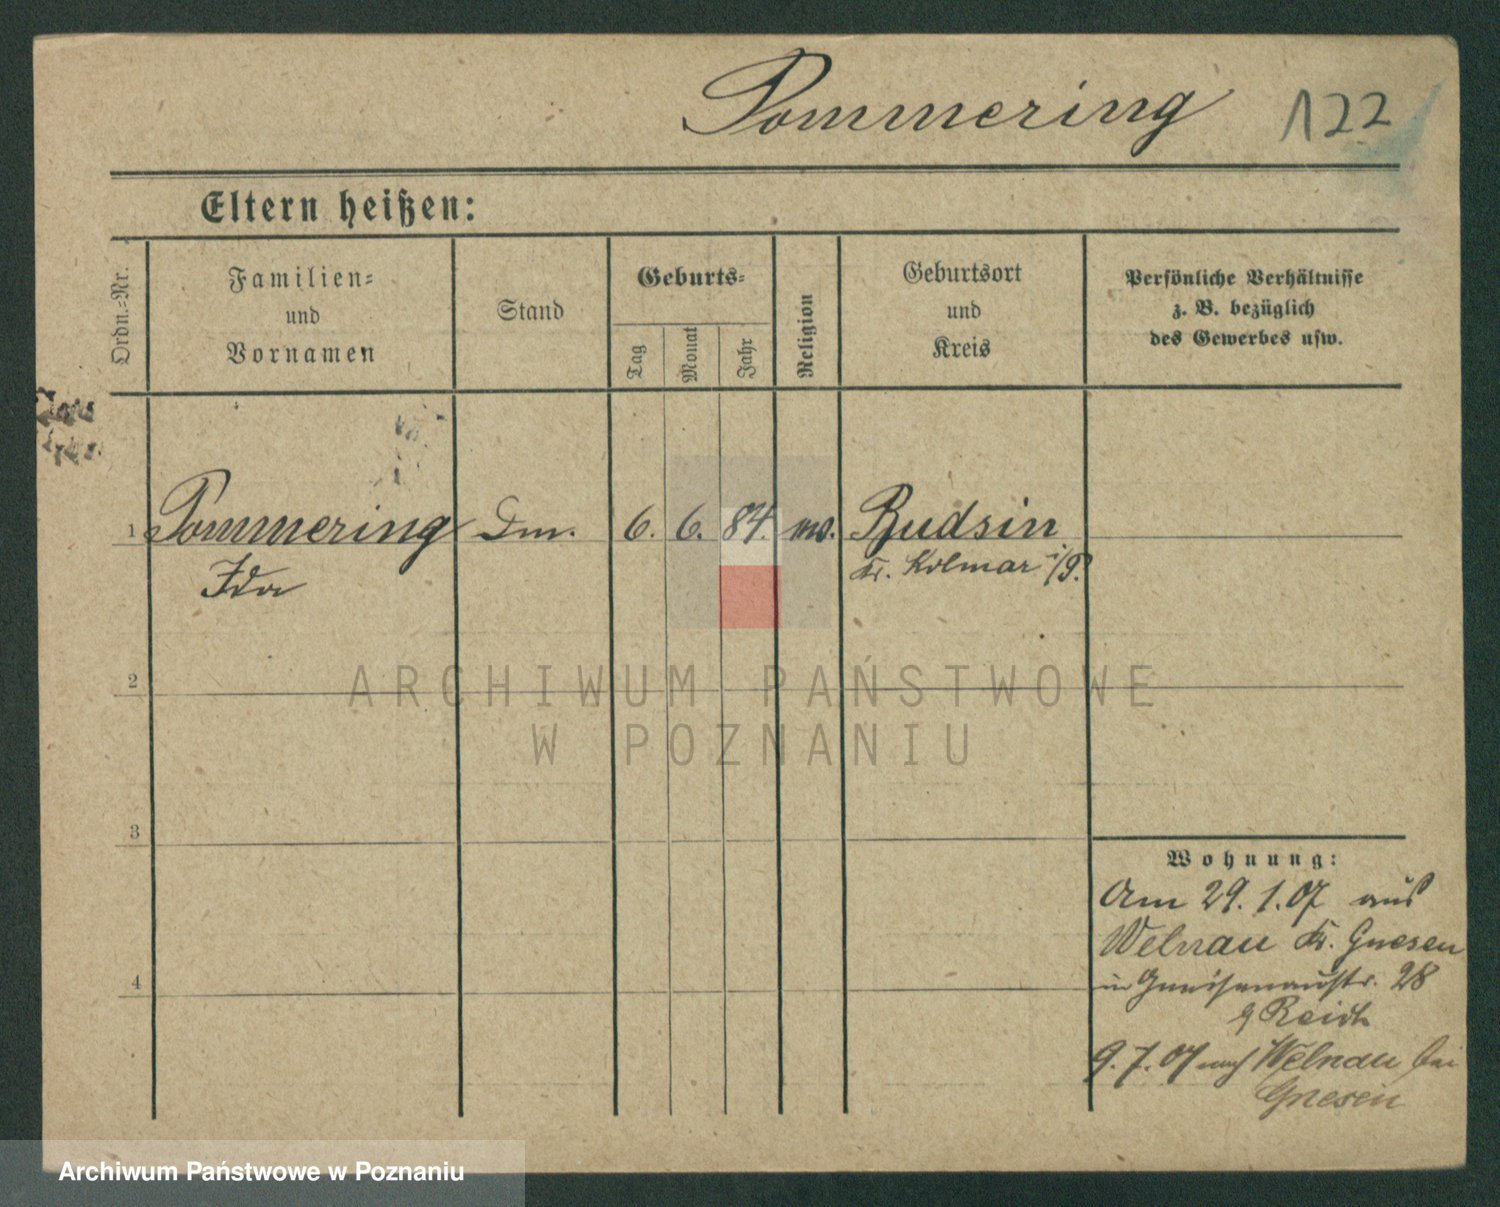 Pommering 122
Eltern heißen:
Ordn.-Nr.
Familien-
und
Vornamen
Stand
Geburts-
Tag
Monat
Jahr
Religion
Geburtsort
und
Kreis
Persönliche Verhältnisse
z. B. bezüglich
des Gewerbes usw.
1 Pommering 6. 6. 84. Budsin
Ida Kr. Kolmar i/P.
2
3
4
Wohnung:
Am 29.1.07 aus
Welnau Kr. Gnesen
in Gneisenaustr. 28
Reich
9.7.07 nach Welnau bei
Gnesen
ARCHIWUM PAŃSTWOWE
W POZNANIU
Archiwum Państwowe w Poznaniu